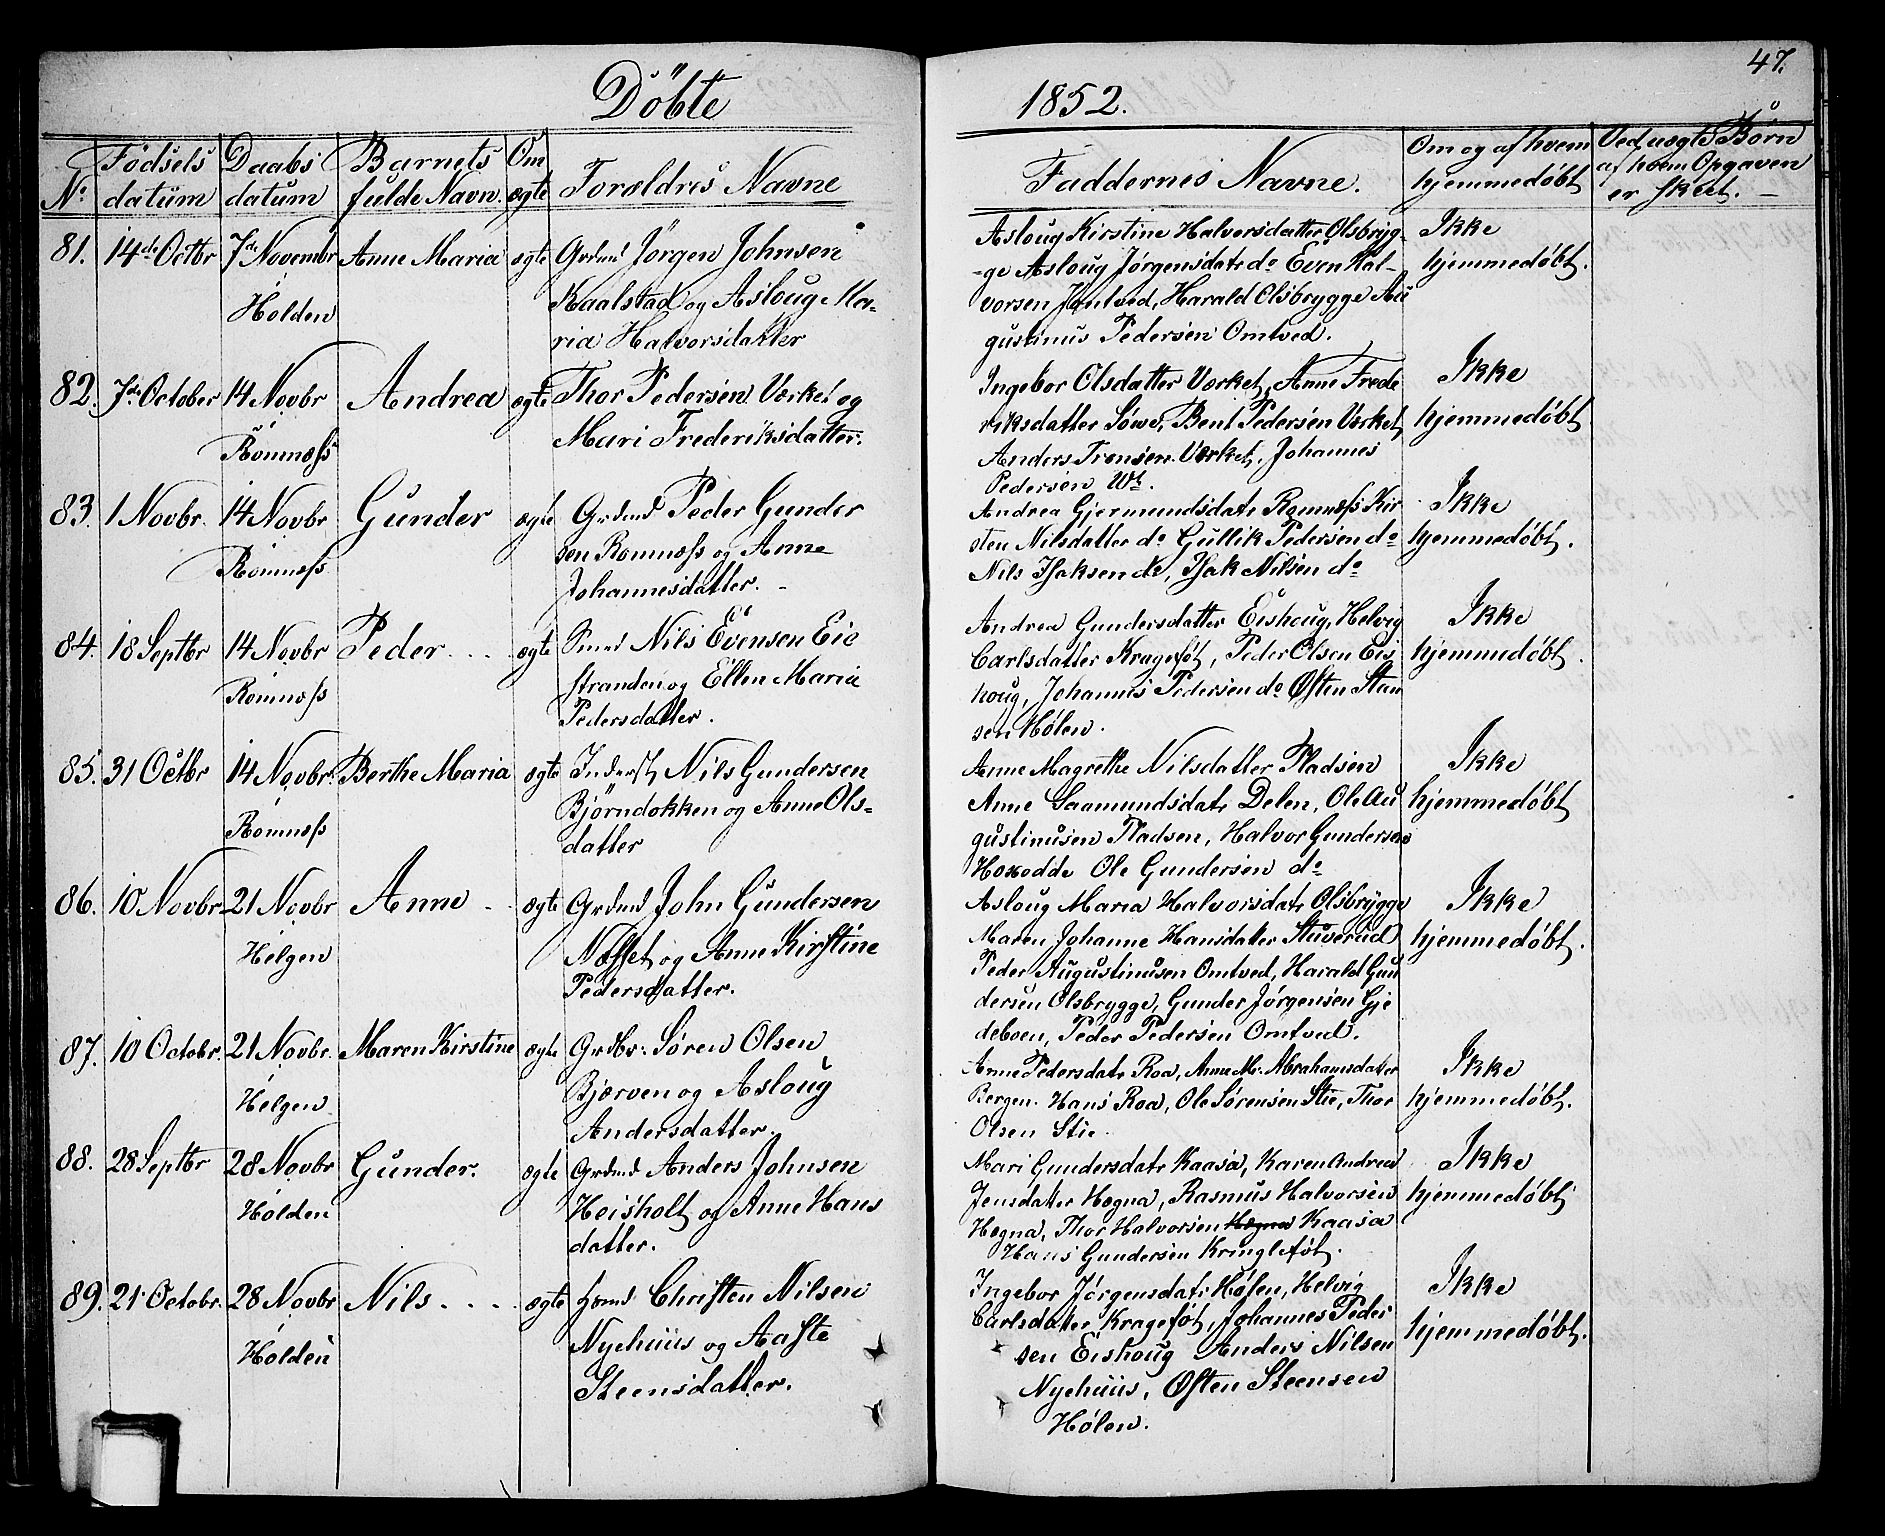 47.
Döbte 1852.
No. Födsels datum Daabs datum Barnets fulde Navn. Om ægte Forældres Navne Faddernes Navne. Om og af hvem hjemmedøbt Ved uægte Børn af hvem Opgaven er skeet. -
81. 14de Octbr 7de Novembr Holden Anne Maria ægte
Grdmd Jörgen Johnsen
Kaalstad og Asloug Ma-
ria Halvorsdatter
Asloug Kirstine Halvorsdatter Olsbryg-
-ge Asloug Jørgensdatr do Even Hal-
vorsen Omtved, Harald Olsbrygge Au
gustinus Pedersen Omtved.
Ikke
hjemmedøbt.
82. 7de October 14 Novbr Romnæss Andrea ægte
Thor Pedersen Værket og
Mari Frederiksdatter.
Ingebor Olsdatter Værket, Anne Frede
riksdatter Søwe, Bent Pedersen Værket,
Anders Tronsen Værket, Johannes
Pedersen
Ikke
hjemmedøbt
83. 1 Novbr. 14 Novbr Romnæss Gunder ægte
Grdmd Peder Gunder
sen Romnæss og Anne
Johannesdatter. -
Andrea Gjermundsdatr Romnæss Kir
sten Nilsdatter do Gullik Pedersen do
Nils Isaksen do, Isak Nilsen do
Ikke
hjemmedøbt.
84. 18 Septbr 14 Novbr Romnæss Peder ... ægte
Smed Nils Evensen Eie
stranden og Ellen Maria
Pedersdatter.
Andrea Gundersdatter Eishoug, Helvig
Carlsdatter Kragefót, Peder Olsen Eis
houg, Johannes Pedersen do Østen Stan
sen Hølen.
Ikke
hjemmedøbt.
85. 31 Octbr 14 Novbr. Romnæss Berthe Maria ægte
Inderst Nils Gundersen
Bjørndokken og Anne Ols-
datter
Anne Magrethe Nilsdatter Pladsen
Anne Saamundsdatr Delen, Ole Au
gustinusen Pladsen, Halvor Gundersen
Ole Gundersen do
Ikke
hjemmedøbt
86. 10 Novbr 21 Novbr Helgen Anne - ægte
Grdmd John Gundersen
Næsset og Anne Kirstine
Pedersdatter.
Asloug Maria Halvorsdatr Olsbrygge
Maren Johanne Hansdatter Stuverud
Peder Augustinusen Omtved, Harald Gun
dersen Olsbrygge, Gunder Jørgensen Gje
deboen, Peder Pedersen Omtved.
Ikke
hjemmedøbt.
87. 10 Octobr. 21 Novbr. Helgen Maren Kirstine ægte
Grdbr. Søren Olsen
Bjerven og Asloug
Andersdatter.
Anne Pedersdatr Roa, Anne M. Abrahamsdatter
Bergen. Hans Roa, Ole Sørensen Stie, Thor
Olsen Stie.
Ikke
hjemmedøbt.
88. 28 Septbr 28 Novbr Holden Gunder. ægte
Grdmd Anders Johnsen
Heisholt og Anne Hans
datter.
Mari Gundersdatr Kaasa, Karen Andrea
Jensdatter Hegna, Rasmus Halvorsen
Hegna, Thor Halvorsen Hegna Kaasa
Hans Gundersen Kringlefót.
Ikke
hjemmedøbt
89. 21 Octobr. 28 Novbr Holden Nils .... ægte
Christen Nilsen
Nyehuus og Aaste
Steensdatter.
Ingebor Jørgensdatr Hølen, Helvig
Carlsdatter Kragefót, Johannes Peder
sen Eishoug Anders Nilsen
Nyehuus, Østen Steensen
Hølen.
Ikke
hjemmedøbt.